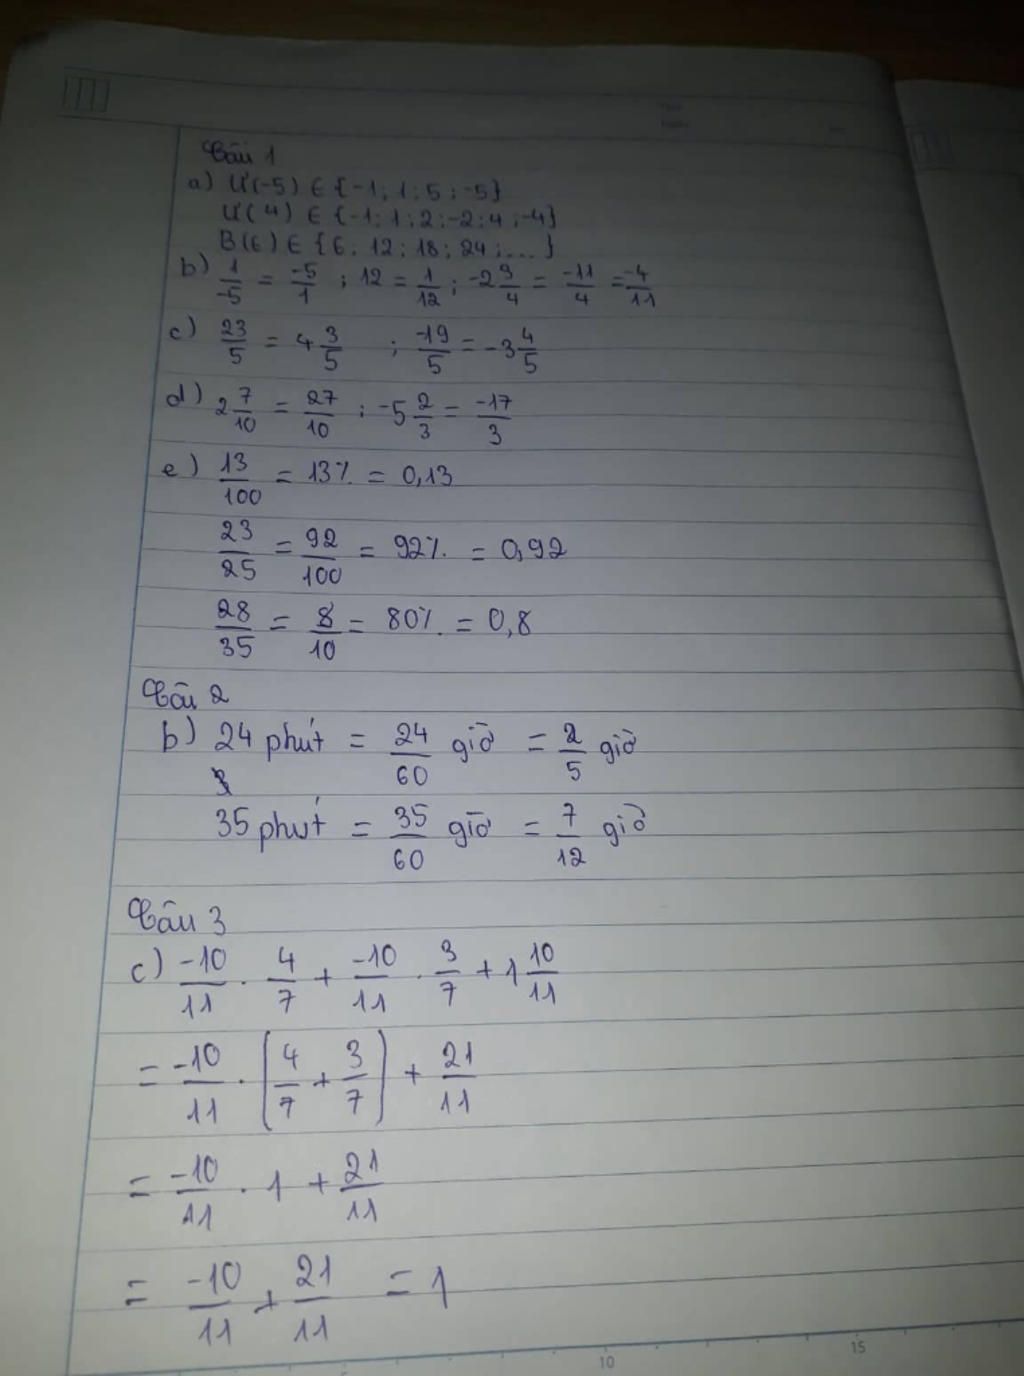 Câu 1
a) Ư(-5) ∈ {-1; 1; 5; -5}
Ư(4) ∈ {-1; 1; 2; -2; 4; -4}
B(6) ∈ {6; 12; 18; 24; ...}
b) 1/-5 = -5/1 ; 12 = 1/12 ; -2 3/4 = -11/4 = -4/11
c) 23/5 = 4 3/5 ; -19/5 = -3 4/5
d) 2 7/10 = 27/10 ; -5 2/3 = -17/3
e) 13/100 = 13% = 0,13
23/25 = 92/100 = 92% = 0,92
28/35 = 8/10 = 80% = 0,8
Câu 2
b) 24 phút = 24/60 giờ = 2/5 giờ
35 phút = 35/60 giờ = 7/12 giờ
Câu 3
c) -10/11 . 4/7 + -10/11 . 3/7 + 1 10/11
= -10/11 . (4/7 + 3/7) + 21/11
= -10/11 . 1 + 21/11
= -10/11 + 21/11 = 1
10 15